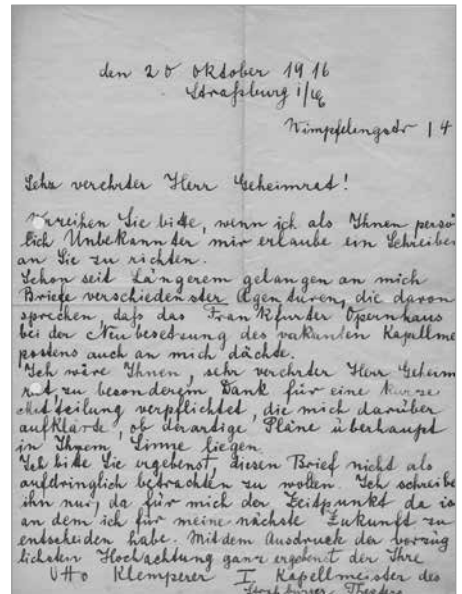 den 20 Oktober 1916
Straßburg i/E
Wimpfelingstr 14
Sehr verehrter Herr Geheimrat!
Verzeihen Sie bitte, wenn ich als Ihnen persö
lich Unbekannter mir erlaube ein Schreiben
an Sie zu richten.
Schon seit Längerem gelangen an mich
Briefe verschiedenster Agenturen, die davon
sprechen, daß das Frankfurter Opernhaus
bei der Neubesetzung des vakanten Kapellme
postens auch an mich dächte.
Ich wäre Ihnen, sehr verehrter Herr Geheim
rat, zu besonderem Dank für eine kurze
Mitteilung verpflichtet, die mich darüber
aufklärte, ob derartige Pläne überhaupt
in Ihrem Sinne liegen.
Ich bitte Sie ergebenst, diesen Brief nicht als
aufdringlich betrachten zu wollen. Ich schreibe
ihn nur, da für mich der Zeitpunkt da is
an dem ich für meine nächste Zukunft zu
entscheiden habe. Mit dem Ausdruck der vorzüg
lichsten Hochachtung ganz ergebenst der Ihre
Otto Klemperer I. Kapellmeister des
Straßburger Theaters